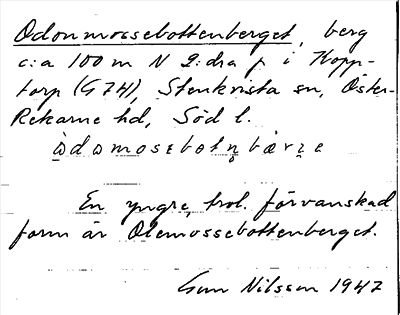 Odonmossebottenberget, berg
c:a 100 m N 2:dra p i Kopp-
torp (G 7 H), Stenkvista sn, Öster-
Rekarne hd, Söd l.
En yngre, trol. förvanskad
form är Olemossebottenberget.
Gun Nilsson 1947